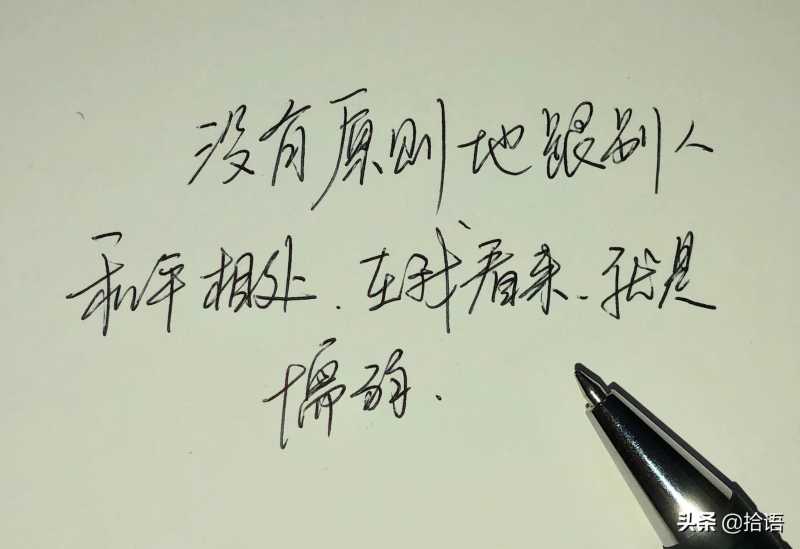 没有原则地跟别人
和平相处.在我看来.就是
懦弱.
头条@拾语